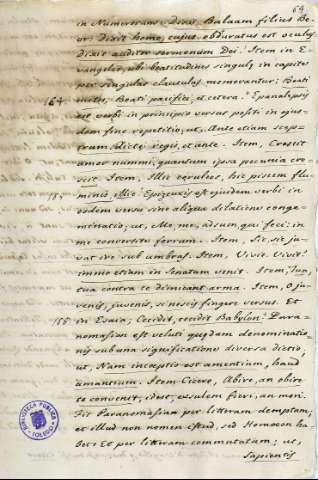 64
in Numerorum: Dixit Balaam filius Be-
or: Dixit homo, cujus obduratus est oculus,
dixit auditor sermonum Dei. Item in E-
vangelio, ubi beatitudines singulę in capite
per singulas clausulas memorantur: Beati
164. mites, Beati pacifici, et cetera. Epanalepsis
est verbi in principio versus positi in ejus-
dem fine repetitio, ut, Ante etiam scep-
trum Dictei regis, et ante. Item, Crescit
amor nummi, quantum ipsa pecunia cre-
scit. Item, Hic equleus, hic pissem flu-
minis, Epizeuxis est ejusdem verbi in
eodem versu sine aliqua dilatione conge-
minatio, ut, Me me, adsum qui feci: in
me convertite ferrum. Item, Sic, sic ju-
vat ire sub umbras. Item, Vivit. Vivit?
immo etiam in Senatum venit. Item, Tua,
tua contra te dimicant arma. Item, O ju-
venis, juvenis, si nescis fingere versus. Et
in Esaia; Cecidit, cecidit Babylon. Para-
nomasion est veluti quędam denominatio-
nis sub una significatione diversa dictio,
ut, Nam inceptio est amentium, haud
amantium. Item Cicero, Abire, an obire
te convenit, idest, exsulem fieri, an mori.
Fit Paranomasian per litteram demptam;
et illud non nomen efsed, sed Homoeon ha-
bet: Et per litteram commutatam; ut,
Sapientis
BIBLIOTECA PÚBLICA
TOLEDO